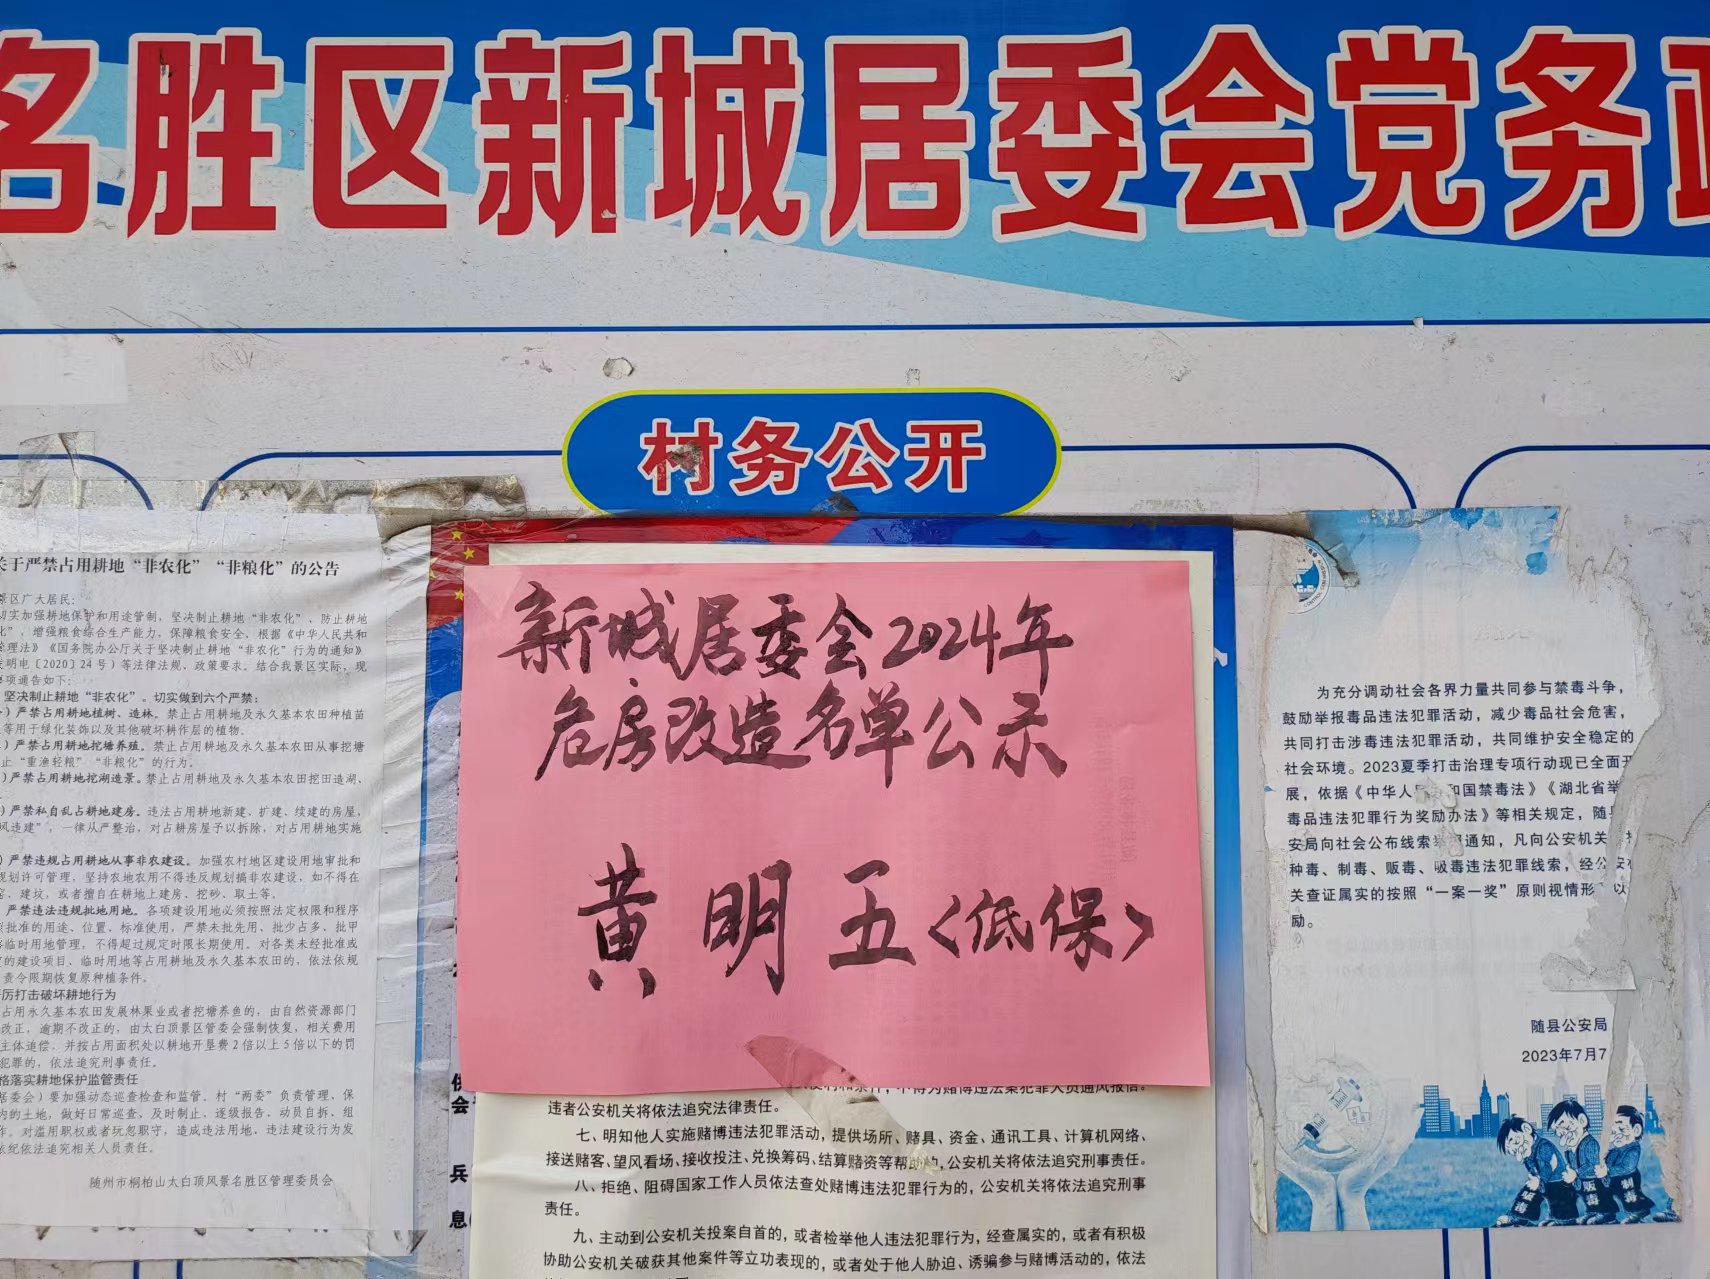 名胜区新城居委会党务
村务公开
关于严禁占用耕地“非农化”“非粮化”的公告
景区广大居民：
切实加强耕地保护和用途管制，坚决制止耕地“非农化”、防止耕地
化”，增强粮食综合生产能力，保障粮食安全，根据《中华人民共和
管理法》《国务院办公厅关于坚决制止耕地“非农化”行为的通知》
发明电〔2020〕24号）等法律法规，政策要求。结合我景区实际，现
事项通告如下：
坚决制止耕地“非农化”。切实做到六个严禁：
）严禁占用耕地植树、造林。禁止占用耕地及永久基本农田种植苗
等用于绿化装饰以及其他破坏耕作层的植物。
）严禁占用耕地挖塘养殖。禁止占用耕地及永久基本农田从事挖塘
止“重渔轻粮”“非粮化”的行为。
）严禁占用耕地挖湖造景。禁止占用耕地及永久基本农田挖田造湖、
）严禁私自乱占耕地建房。违法占用耕地新建、扩建、续建的房屋，
风违建”，一律从严整治，对占耕房屋予以拆除，对占用耕地实施
）严禁违规占用耕地从事非农建设。加强农村地区建设用地审批和
规划许可管理，坚持农地农用不得违反规划搞非农建设，如不得在
窑、建坟，或者擅自在耕地上建房、挖砂、取土等。
严禁违法违规批地用地。各项建设用地必须按照法定权限和程序
批准的用途、位置、标准使用，严禁未批先用、批少占多、批甲
临时用地管理，不得超过规定时限长期使用。对各类未经批准或
的建设项目、临时用地等占用耕地及永久基本农田的，依法依规
责令限期恢复原种植条件。
厉打击破坏耕地行为
占用永久基本农田发展林果业或者挖塘养鱼的，由自然资源部门
改正，逾期不改正的，由太白顶景区管委会强制恢复，相关费用
主体追偿，并按占用面积处以耕地开垦费2倍以上5倍以下的罚
犯罪的，依法追究刑事责任。
格落实耕地保护监管责任
居委会）要加强动态巡查检查和监管。村“两委”负责管理、保
内的土地，做好日常巡查，及时制止、逐级报告、动员自拆、组
作。对滥用职权或者玩忽职守，造成违法用地、违法建设行为发
依纪依法追究相关人员责任。
随州市桐柏山太白顶风景名胜区管理委员会
新城居委会2024年
危房改造名单公示
黄明五<低保>
不得为赌博违法案犯罪人员通风报信。
违者公安机关将依法追究法律责任。
七、明知他人实施赌博违法犯罪活动，提供场所、赌具、资金、通讯工具、计算机网络、
接送赌客、望风看场、接收投注、兑换筹码、结算赌资等帮助的，公安机关将依法追究刑事责任。
八、拒绝、阻碍国家工作人员依法查处赌博违法犯罪行为的，公安机关将依法追究刑事
责任。
九、主动到公安机关投案自首的，或者检举他人违法犯罪行为，经查属实的，或者有积极
协助公安机关破获其他案件等立功表现的，或者处于他人胁迫、诱骗参与赌博活动的，依法
会
兵
息
为充分调动社会各界力量共同参与禁毒斗争，
鼓励举报毒品违法犯罪活动，减少毒品社会危害，
共同打击涉毒违法犯罪活动，共同维护安全稳定的
社会环境。2023夏季打击治理专项行动现已全面开
展，依据《中华人民 和国禁毒法》《湖北省举
毒品违法犯罪行为奖励办法》等相关规定，随县
安局向社会公布线索举报通知，凡向公安机关
种毒、制毒、贩毒、吸毒违法犯罪线索，经公安
关查证属实的按照“一案一奖”原则视情形 以
励。
随县公安局
2023年7月7
贩毒
制毒